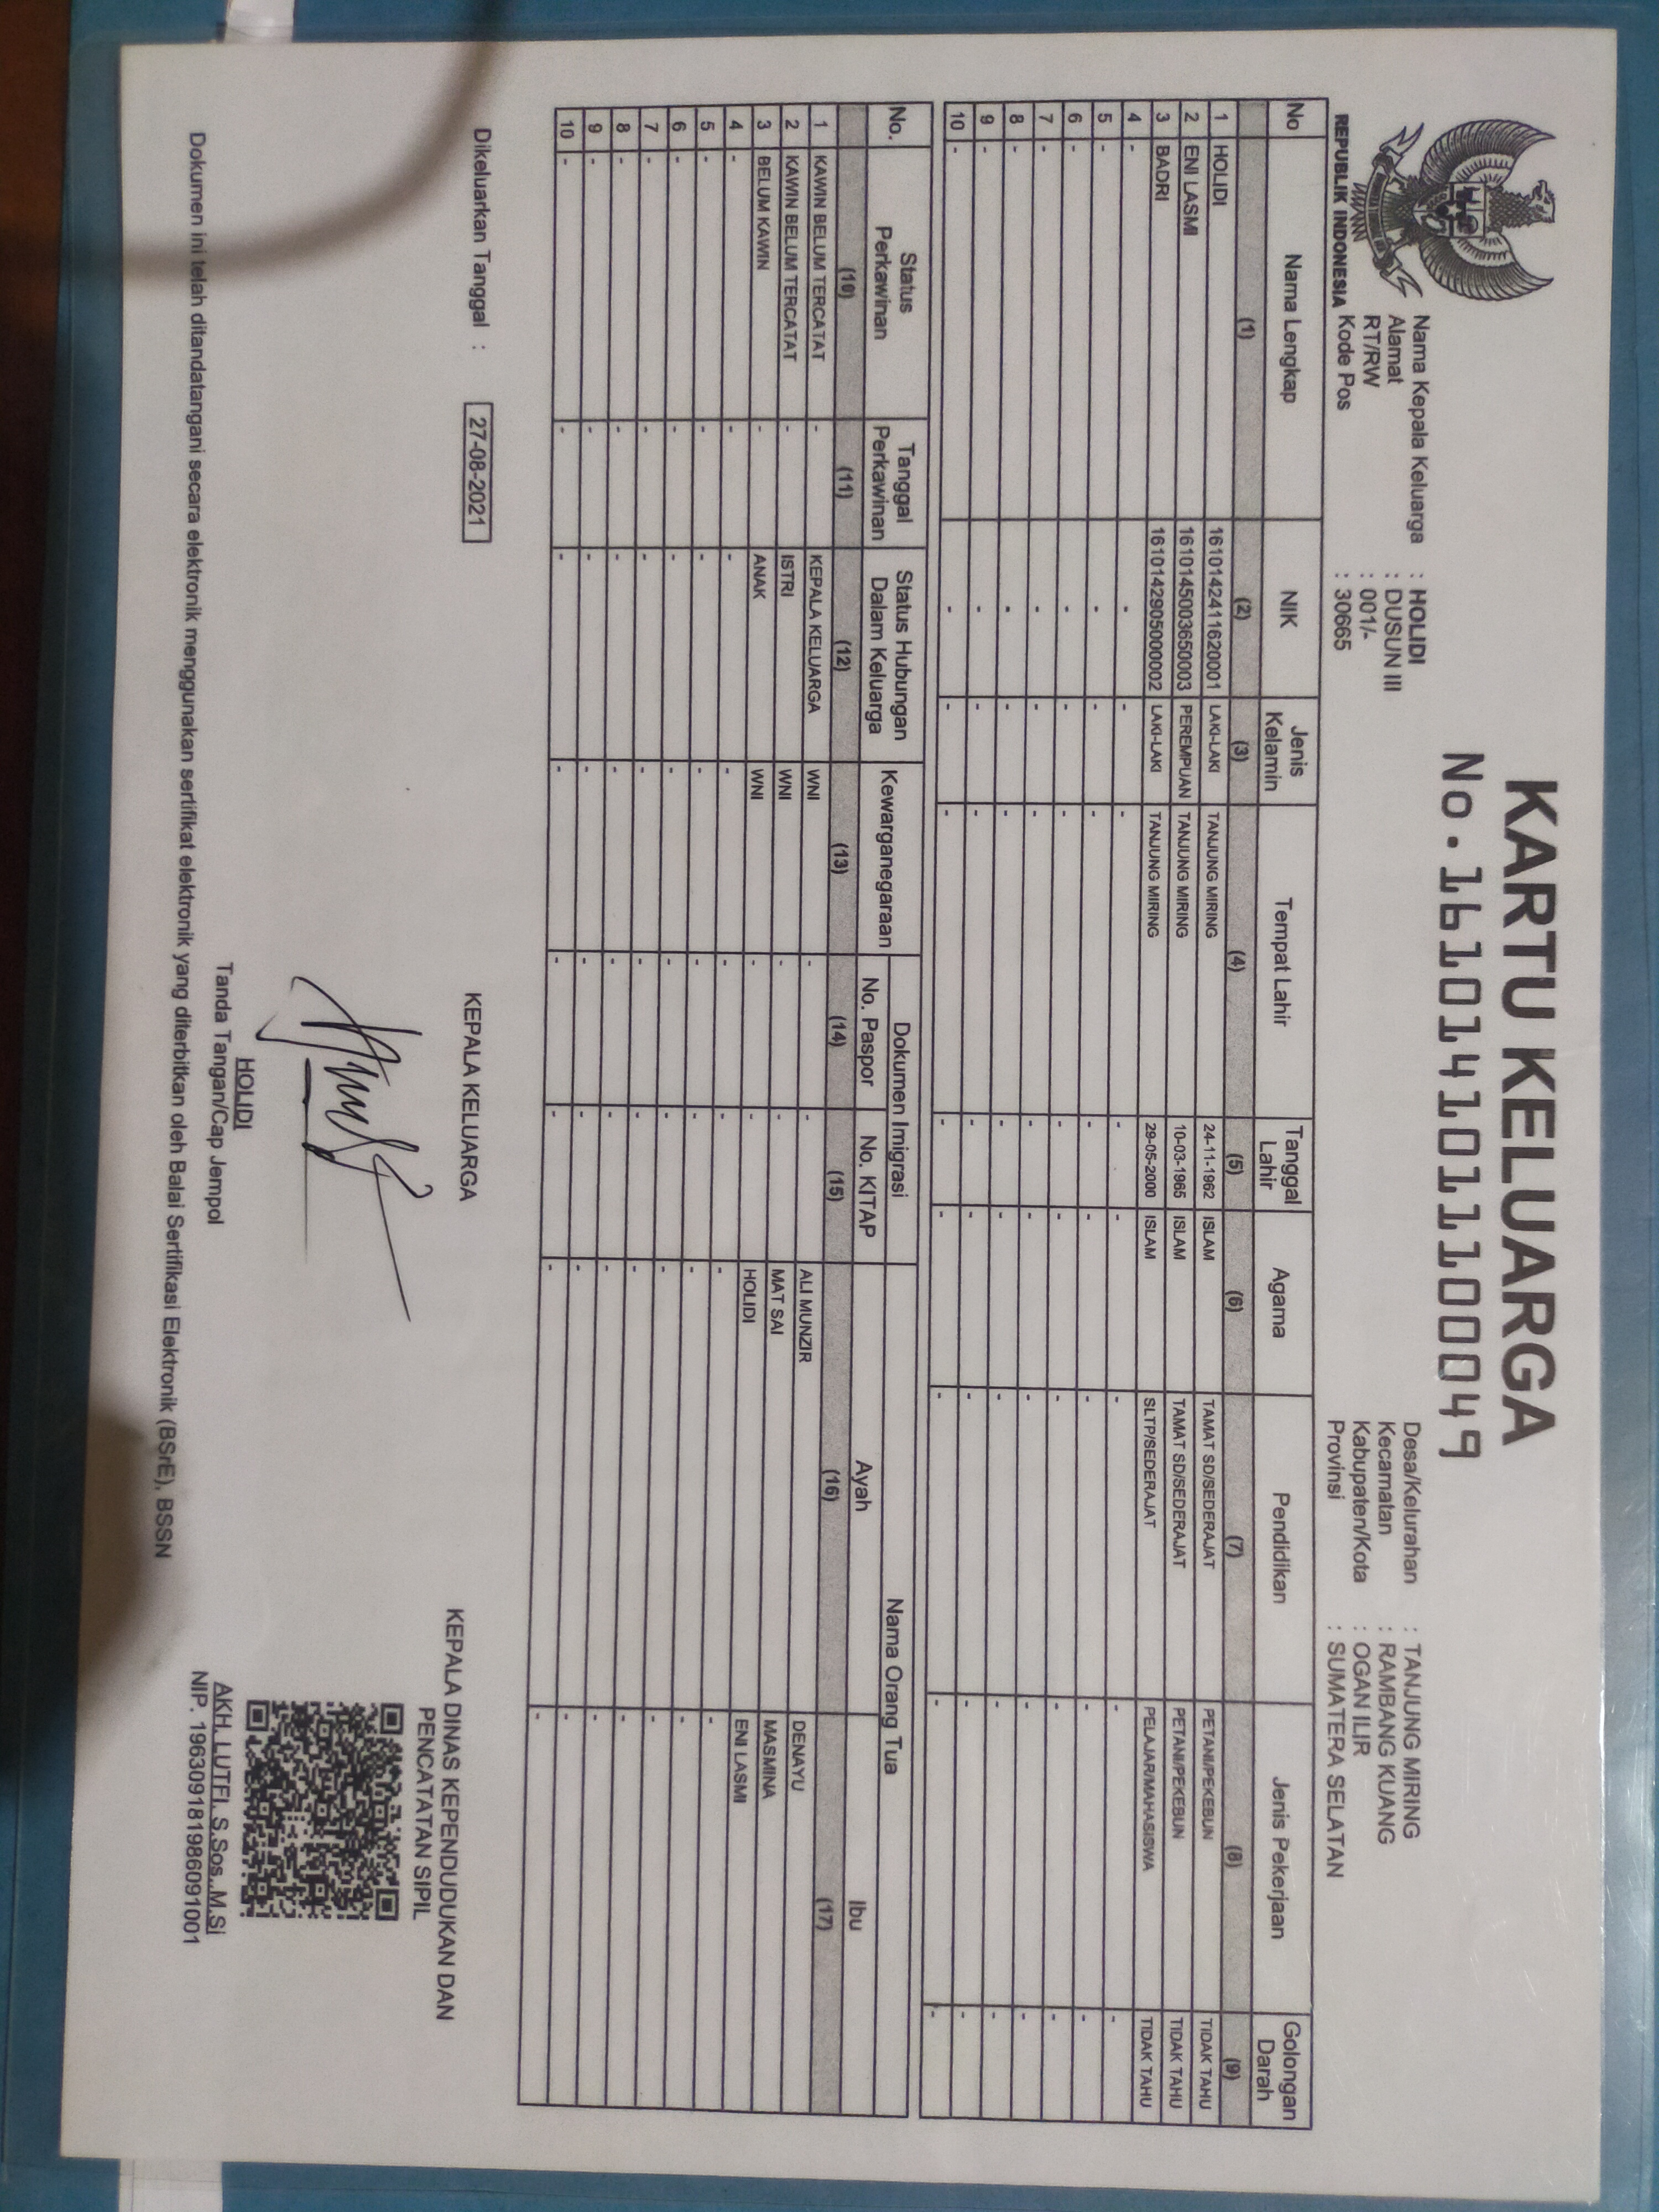 KARTU KELUARGA
No. 1610141011100049
REPUBLIK INDONESIA
Nama Kepala Keluarga : HOLIDI
Alamat : DUSUN III
RT/RW : 001/-
Kode Pos : 30665
Desa/Kelurahan : TANJUNG MIRING
Kecamatan : RAMBANG KUANG
Kabupaten/Kota : OGAN ILIR
Provinsi : SUMATERA SELATAN
No Nama Lengkap NIK Jenis Kelamin Tempat Lahir Tanggal Lahir Agama Pendidikan Jenis Pekerjaan Golongan Darah
(1) (2) (3) (4) (5) (6) (7) (8) (9)
1 HOLIDI 1610142411620001 LAKI-LAKI TANJUNG MIRING 24-11-1962 ISLAM TAMAT SD/SEDERAJAT PETANI/PEKEBUN TIDAK TAHU
2 ENI LASMI 1610145003650003 PEREMPUAN TANJUNG MIRING 10-03-1965 ISLAM TAMAT SD/SEDERAJAT PETANI/PEKEBUN TIDAK TAHU
3 BADRI 1610142905000002 LAKI-LAKI TANJUNG MIRING 29-05-2000 ISLAM SLTP/SEDERAJAT PELAJAR/MAHASISWA TIDAK TAHU
4 - - - - - - - - -
5 - - - - - - - - -
6 - - - - - - - - -
7 - - - - - - - - -
8 - - - - - - - - -
9 - - - - - - - - -
10 - - - - - - - - -
No. Status Perkawinan Tanggal Perkawinan Status Hubungan Dalam Keluarga Kewarganegaraan Dokumen Imigrasi Nama Orang Tua
No. Paspor No. KITAP Ayah Ibu
(10) (11) (12) (13) (14) (15) (16) (17)
1 KAWIN BELUM TERCATAT - KEPALA KELUARGA WNI - - ALI MUNZIR DENAYU
2 KAWIN BELUM TERCATAT - ISTRI WNI - - MAT SAI MASMINA
3 BELUM KAWIN - ANAK WNI - - HOLIDI ENI LASMI
4 - - - - - - - -
5 - - - - - - - -
6 - - - - - - - -
7 - - - - - - - -
8 - - - - - - - -
9 - - - - - - - -
10 - - - - - - - -
Dikeluarkan Tanggal : 27-08-2021
KEPALA KELUARGA
HOLIDI
Tanda Tangan/Cap Jempol
KEPALA DINAS KEPENDUDUKAN DAN
PENCATATAN SIPIL
AKH. LUTFI, S.Sos.,M.Si
NIP. 196309181986091001
Dokumen ini telah ditandatangani secara elektronik menggunakan sertifikat elektronik yang diterbitkan oleh Balai Sertifikasi Elektronik (BSrE), BSSN